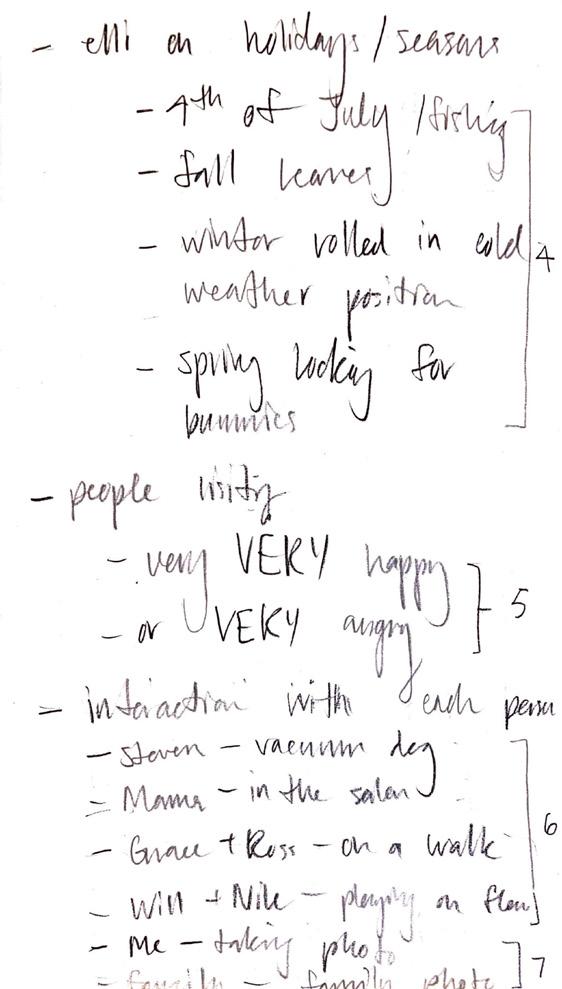 - elli on holidays/seasons
- 4th of July/fishing
- fall leaves
- winter rolled in cold
weather position
4
- spring looking for
bunnies
- people visiting
- very VERY happy
- or VERY angry
5
- interaction with each person
- Steven - vacuum dog
- Mama - in the salon
- Grace + Ross - on a walk
6
- Will + Nik - playing on floor
- Me - taking photo
- family - family photo
7